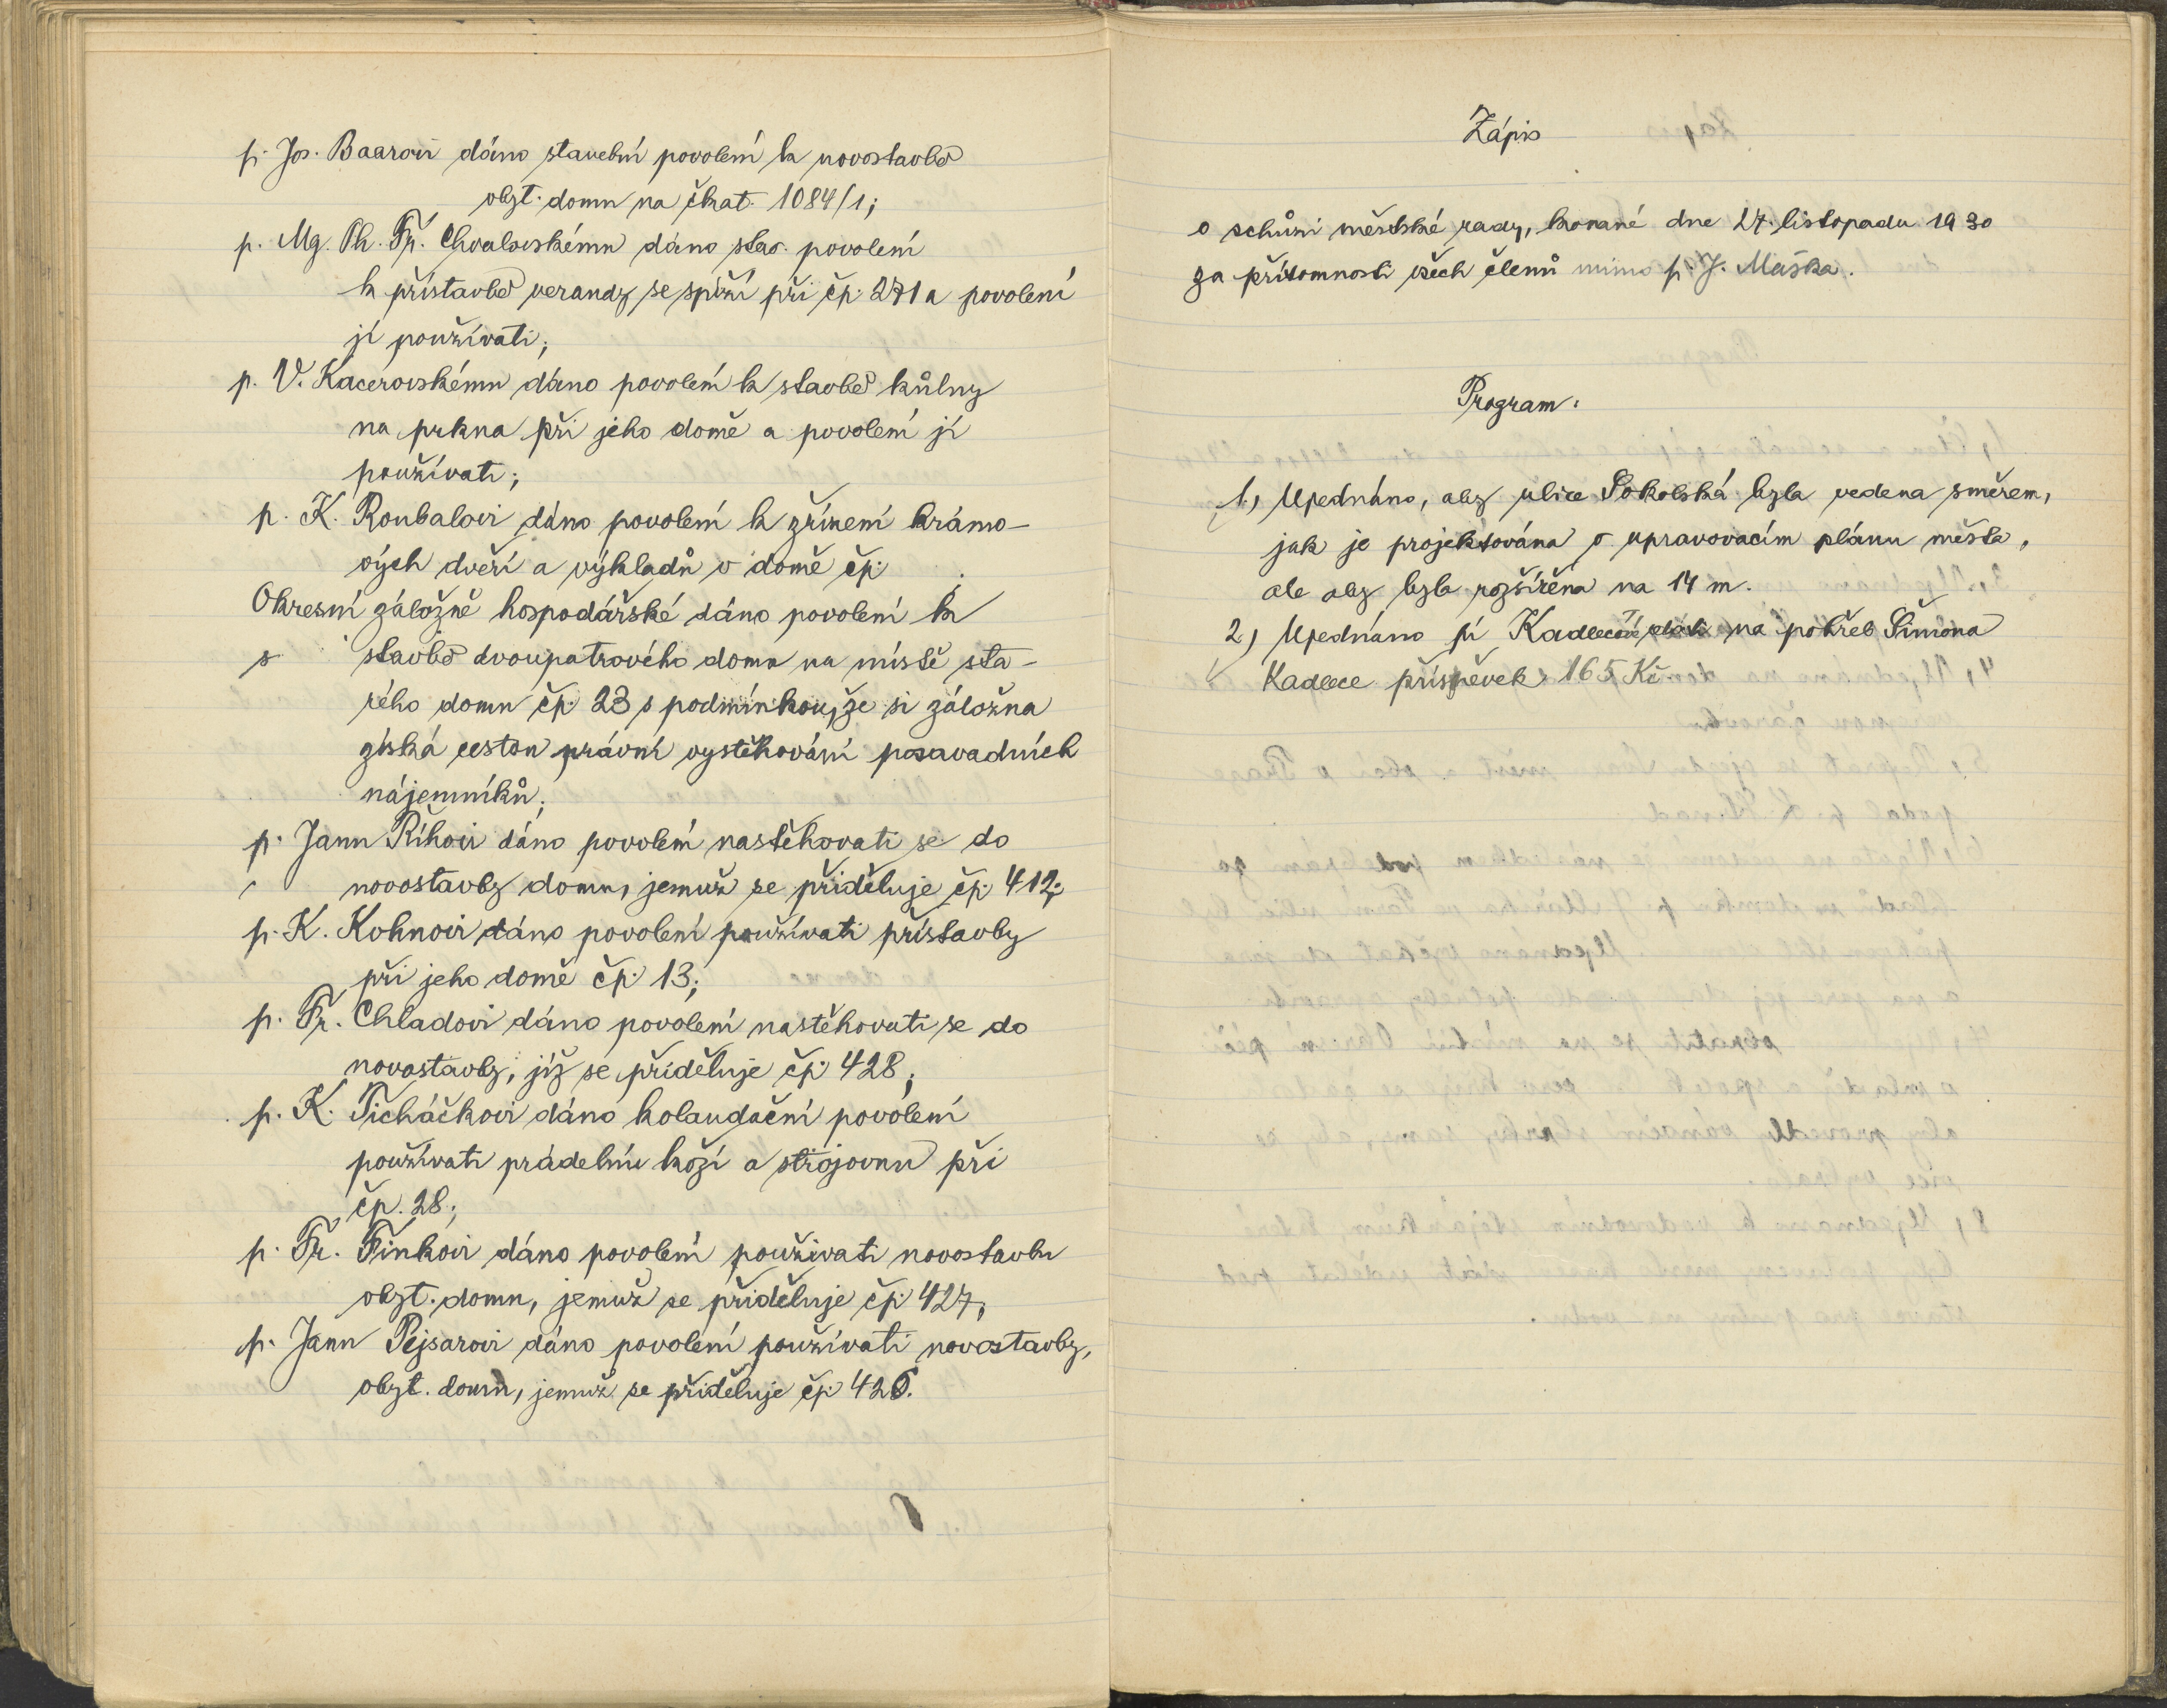 p. Jos. Baarovi dáno stavební povolení k novostavbě
obyt. domu na čkat. 1084/1;
p. Mg. Ph. Fr. Chvalovskému dáno stav. povolení
k přístavbě verandy se spíží při čp. 271 a povolení
jí používati;
p. V. Kacerovskému dáno povolení k stavbě kůlny
na prkna při jeho domě a povolení jí
používati;
p. K. Roubalovi dáno povolení k zřízení krámo-
vých dveří a výkladů v domě čp.
Okresní záložně hospodářské dáno povolení k
stavbě dvoupatrového domu na místě sta-
rého domu čp. 23 s podmínkou, že si záložna
získá cestou právní vystěhování posavadních
nájemníků;
p. Janu Říhovi dáno povolení nastěhovati se do
novostavby domu, jemuž se přiděluje čp. 412;
p. K. Kohnovi dáno povolení používati přístavby
při jeho domě čp. 13;
p. Fr. Chladovi dáno povolení nastěhovati se do
novostavby, jíž se přiděluje čp. 428;
p. K. Ticháčkovi dáno kolaudační povolení
používati prádelnu koží a strojovnu při
čp. 28;
p. Fr. Finkovi dáno povolení používati novostavbu
obyt. domu, jemuž se přiděluje čp. 427,
p. Janu Pejsarovi dáno povolení používati novostavby,
obyt. domu, jemuž se přiděluje čp. 426.
Zápis
o schůzi městské rady, konané dne 27. listopadu 1930
za přítomnosti všech členů mimo p. J. Maška.
Program:
1, Ujednáno, aby ulice Sokolská byla vedena směrem,
jak je projektována v upravovacím plánu města,
ale aby byla rozšířena na 14 m.
2, Ujednáno pí Kadlecové na pohřeb Šimona
Kadlece příspěvek 165 Kč.